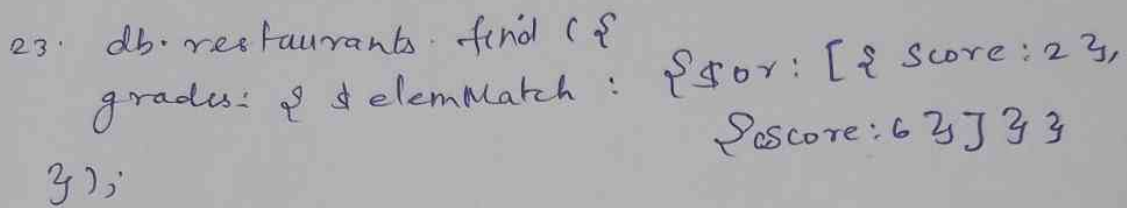 23. db.restaurants.find ({
grades: { $ elemMatch : {$or: [{ score: 2 },
{score: 6 }] } }
});